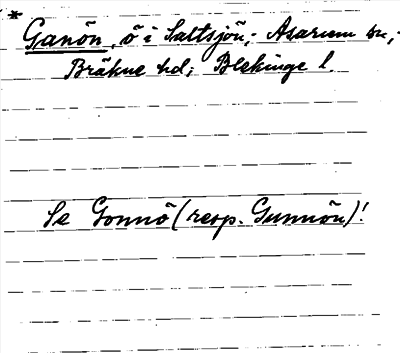 * Ganön, ö i Saltsjön; Asarum sn;
Bräkne hd; Blekinge l.
Se Gonnö (resp. Gunnön)!